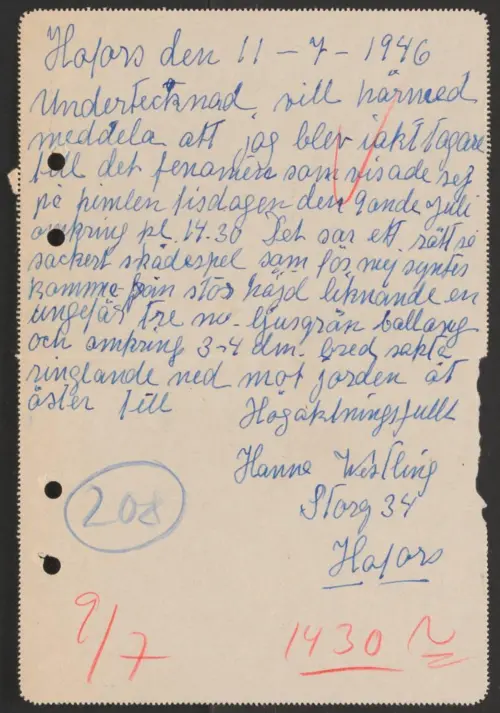 Hofors den 11 - 7 - 1946
Undertecknad vill härmed
meddela att jag blev iakttagare
till det fenomen som visade sej
på himlen tisdagen den 9ande Juli
omkring kl. 14.30 Det var ett rätt så
vackert skådespel som för mej syntes
komma från stor höjd liknande en
ungefär tre m. ljusgrön ballong
och omkring 3-4 dm. bred sakta
ringlande ned mot jorden åt
öster till
Högaktningsfullt
Hanna
Storg 34
Hofors
208
9/7
1430